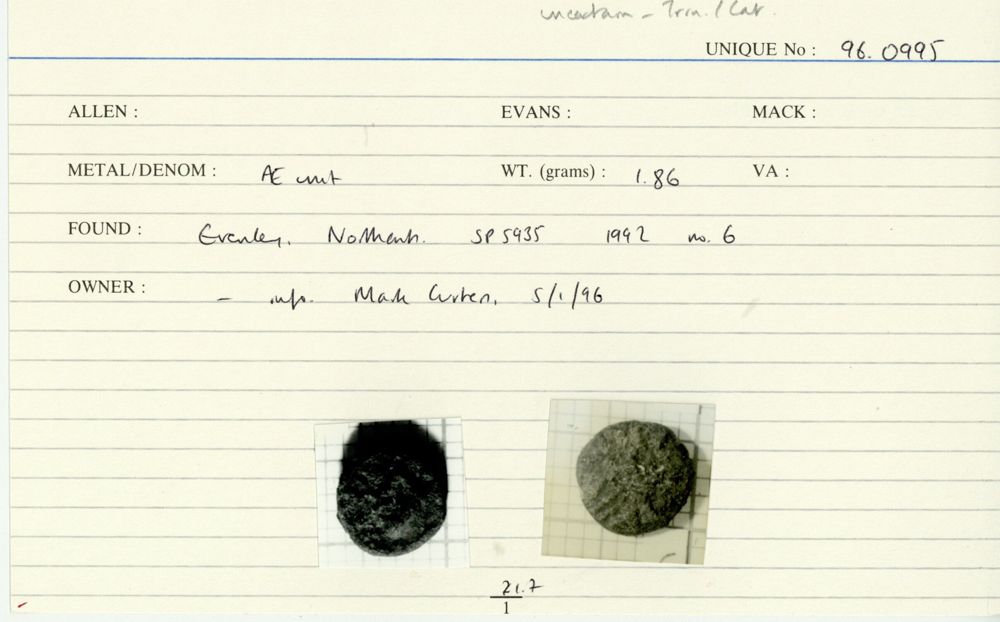 uncertain - Trin. / Cat.
UNIQUE No : 96. 0995
ALLEN : EVANS : MACK :
METAL/DENOM : Æ unit WT. (grams) : 1.86 VA :
FOUND : Evenley, Northants. SP 5935 1992 no. 6
OWNER : - info. Mark Curteis, 5/1/96
21.7
1